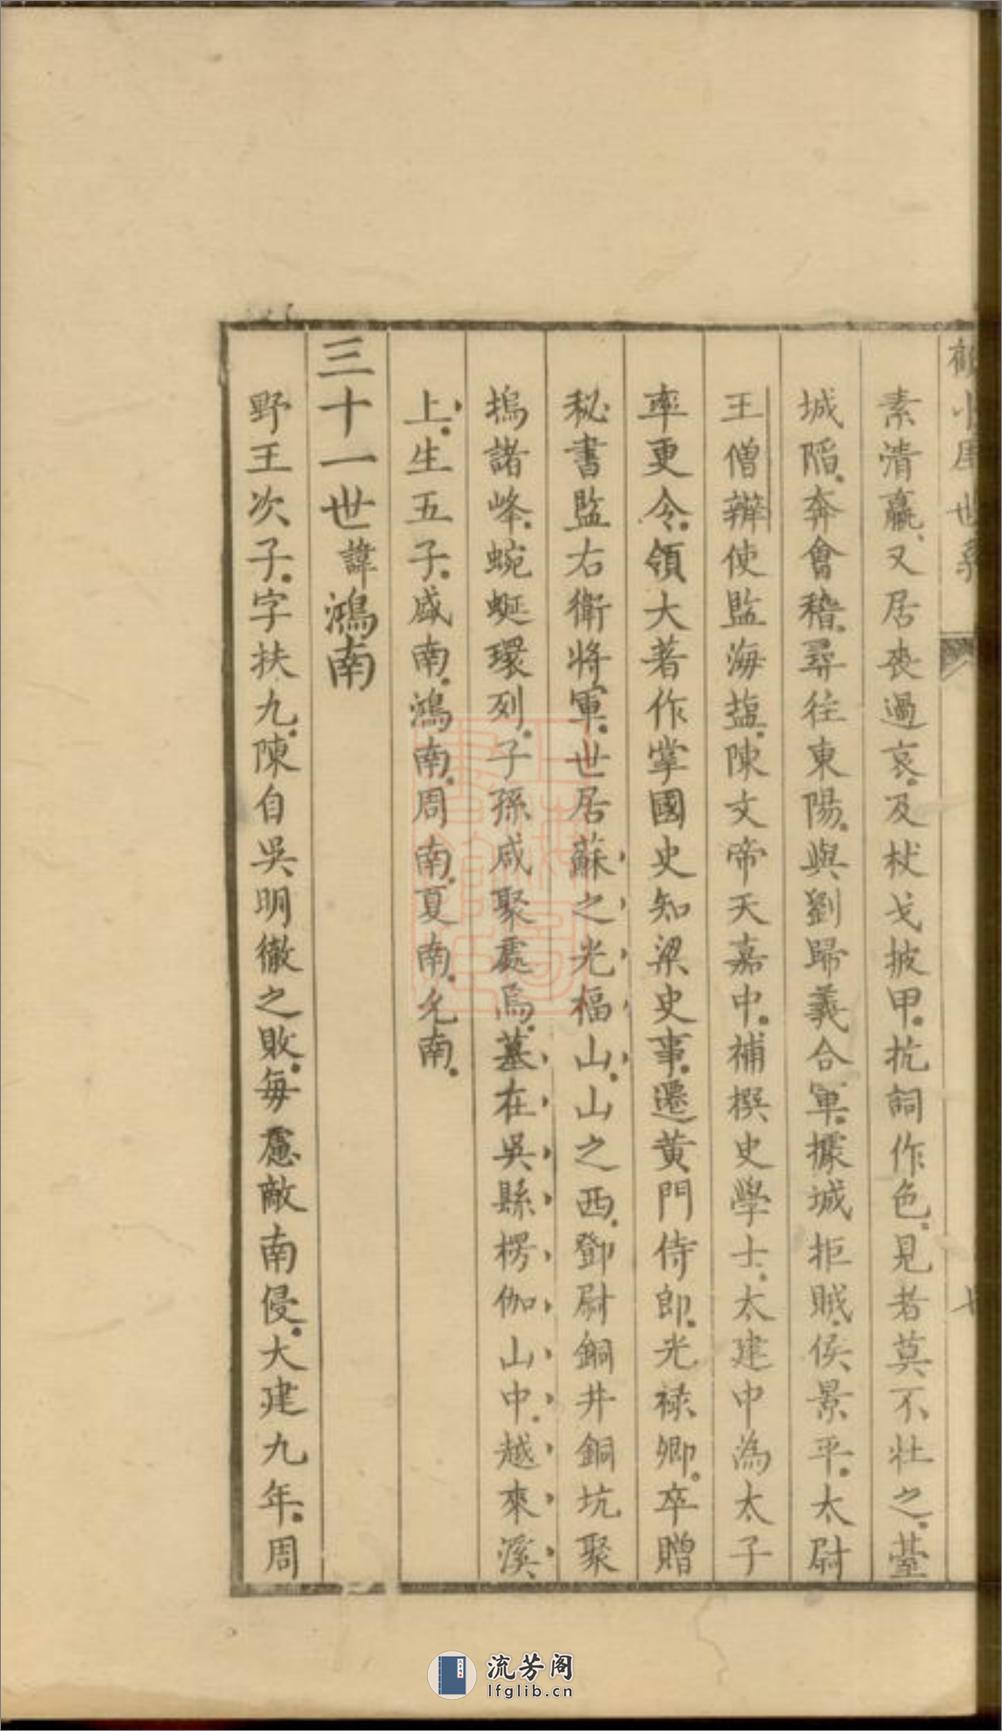 素清羸又居喪過哀及杖戈披甲抗詞作色見者莫不壯之臺
城陷奔會稽尋往東陽與劉歸義合軍據城拒賊侯景平太尉
王僧辯使監海塩陳文帝天嘉中補撰史學士太建中為太子
率更令領大著作掌國史知梁史事遷黄門侍郎光祿卿卒贈
秘書監右衛將軍世居蘇之光福山山之西鄧尉銅井銅坑聚
塢諸峰蜿蜒環列子孫咸聚處焉墓在吳縣楞伽山中越來溪
上生五子咸南鴻南周南夏南允南
三十一世諱鴻南
野王次子字扶九陳自吳明徹之敗每慮敵南侵大建九年周
流芳阁
lfglib.cn